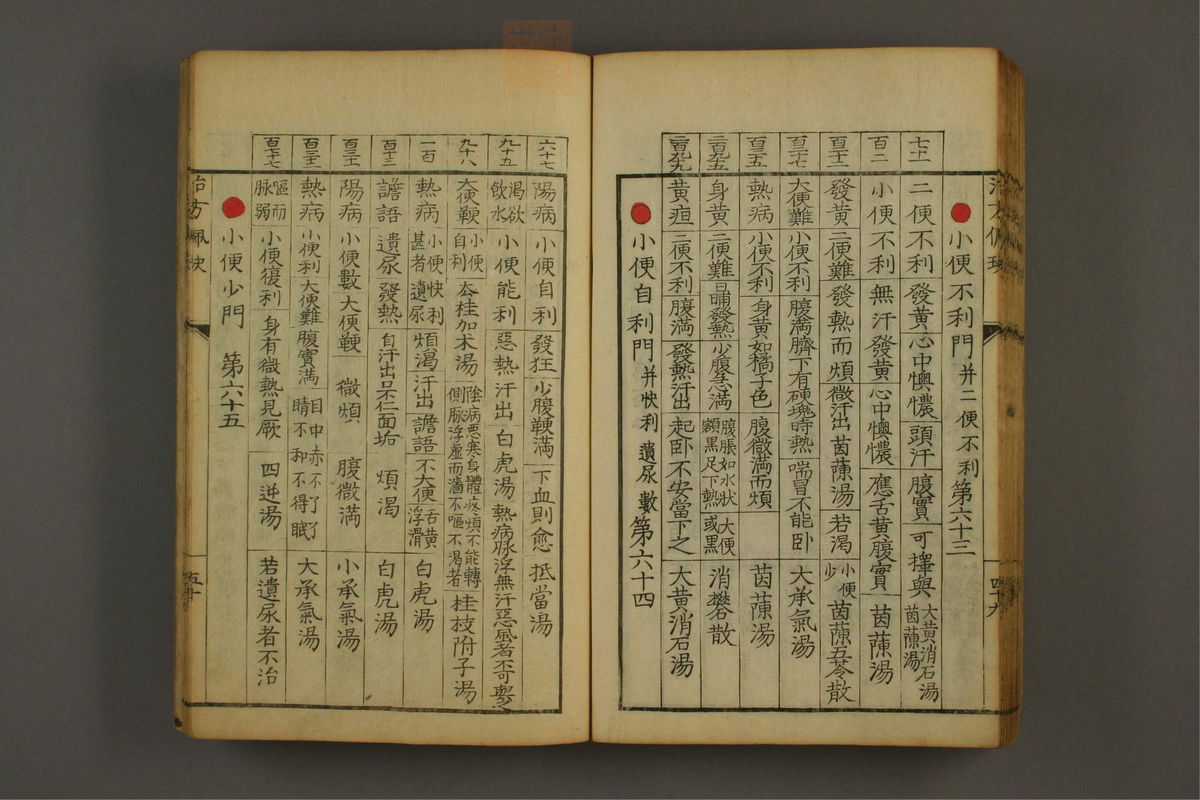 四十九
小便不利門 并二便不利 第六十三
七十一 二便不利 發黄心中懊憹 頭汗 腹實 可擇與 大黄消石湯 茵蔯湯
百二 小便不利 無汗發黄 心中懊憹 應舌黄腹實 茵蔯湯
發黄 二便難 發熱而煩 微汗出 茵蔯湯 若渴 小便少 茵蔯五苓散
大便難 小便不利 腹滿臍下有硬塊時熱 喘冒不能卧 大承氣湯
熱病 小便不利 身黄如橘子色 腹微滿而煩 茵蔯湯
身黄 二便難 日晡發熱 少腹急滿 腹脹如水狀 額黒足下熱 大便或黒 消礬散
黄疸 二便不利 腹滿 發熱汗出 起卧不安當下之 大黄消石湯
小便自利門 并快利 遺尿 數 第六十四
六十七 陽病 小便自利 發狂 少腹鞕滿 下血則愈 抵當湯
九十五 渴欲飲水 小便能利 惡熱 汗出 白虎湯 熱病脉浮無汗惡風者不可與之
九十八 大便鞕 小便自利 去桂加朮湯 陰病惡寒身體疼煩不能轉側脉浮虛而濇不嘔不渴者 桂枝附子湯
一百 熱病 小便快利甚者遺尿 煩渴 汗出 譫語 不大便 舌黄浮滑 白虎湯
百十二 譫語 遺尿 發熱 自汗出 口不仁面垢 煩渴 白虎湯
陽病 小便數 大便鞕 微煩 腹微滿 小承氣湯
熱病 小便利 大便難 腹實滿 目中赤不了了睛不和不得眠 大承氣湯
嘔而脉弱 小便復利 身有微熱見厥 四逆湯 若遺尿者不治
小便少門 第六十五
五十